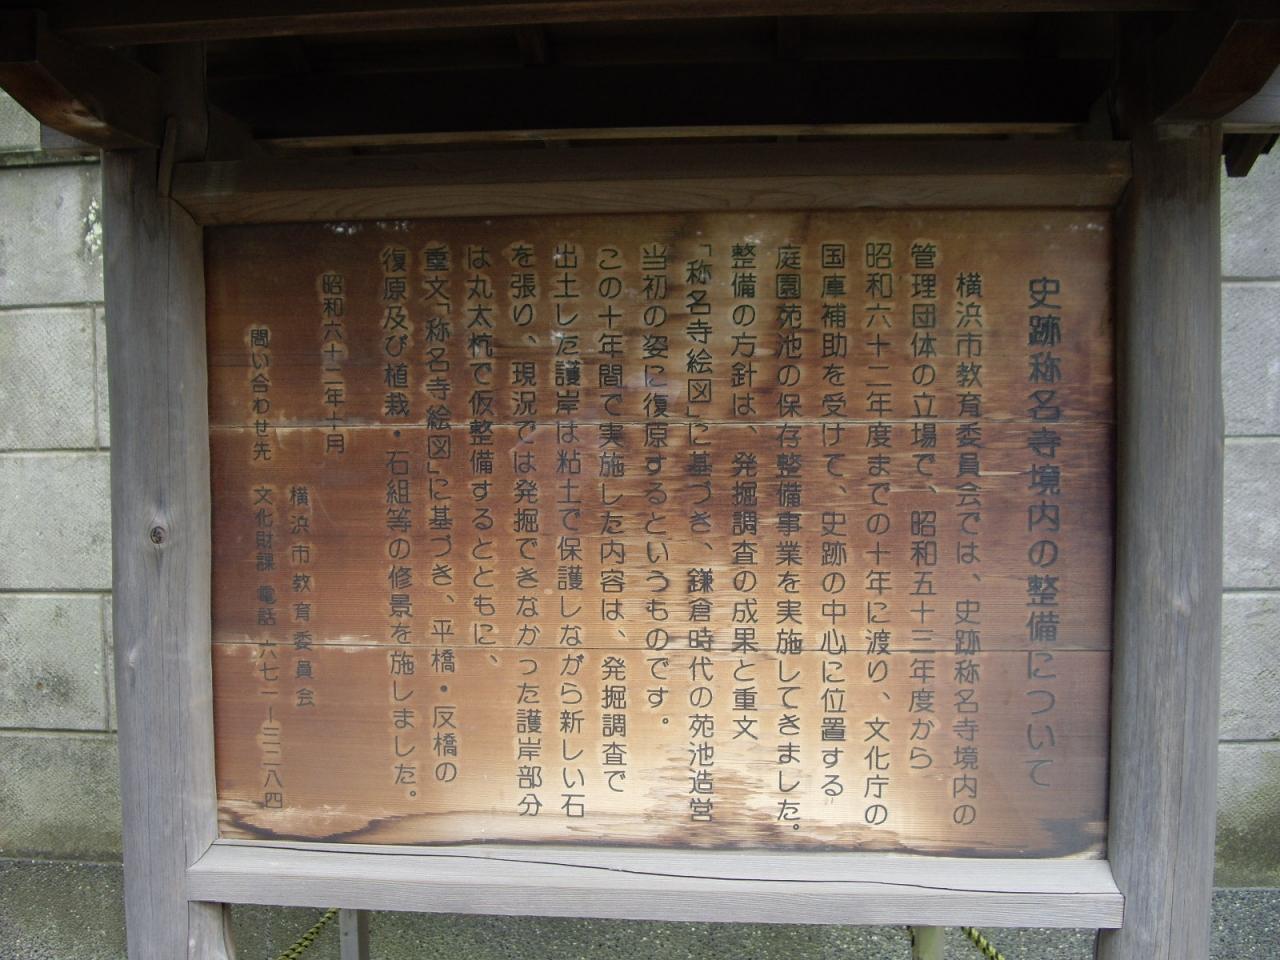 史跡称名寺境内の整備について
横浜市教育委員会では、史跡称名寺境内の
管理団体の立場で、昭和五十三年度から
昭和六十二年度までの十年に渡り、文化庁の
国庫補助を受けて、史跡の中心に位置する
庭園苑池の保存整備事業を実施してきました。
整備の方針は、発掘調査の成果と重文
「称名寺絵図」に基づき、鎌倉時代の苑池造営
当初の姿に復原するというものです。
この十年間で実施した内容は、発掘調査で
出土した護岸は粘土で保護しながら新しい石
を張り、現況では発掘できなかった護岸部分
は丸太杭で仮整備するとともに、
重文「称名寺絵図」に基づき、平橋・反橋の
復原及び植栽・石組等の修景を施しました。
昭和六十二年十月
横浜市教育委員会
問い合わせ先 文化財課 電話 六七一―三二八四